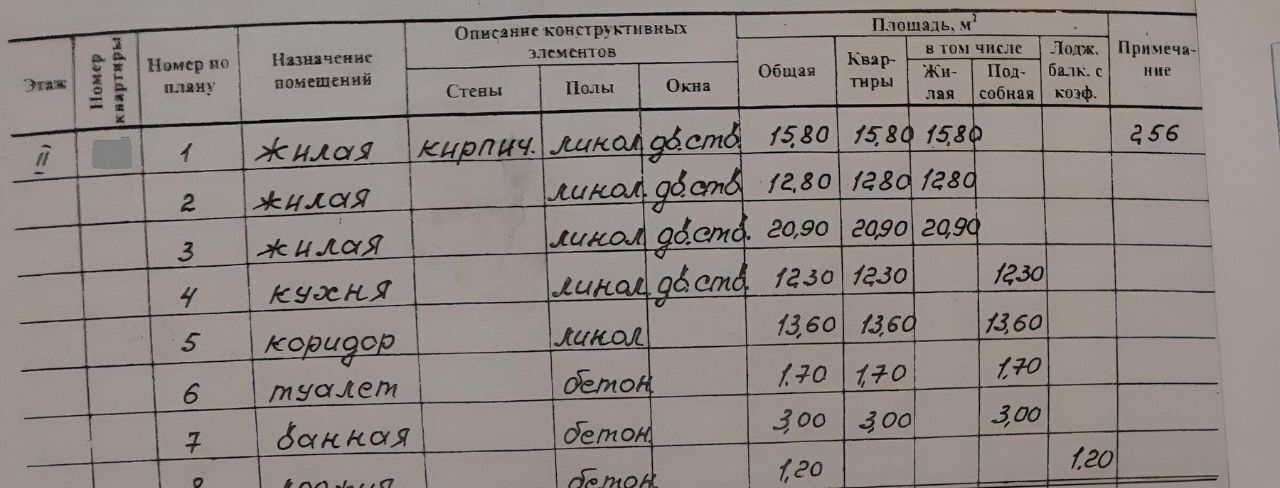 Этаж Номер квартиры Номер по плану Назначение помещений Описание конструктивных элементов Площадь, м² Примеча-ние
Стены Полы Окна Общая Квар-тиры в том числе Лодж. балк. с коэф.
Жи-лая Под-собная
II 1 жилая кирпич. линол дв.ств. 15,80 15,80 15,80 2,56
2 жилая линол. дв.ств. 12,80 12,80 12,80
3 жилая линол дв.ств. 20,90 20,90 20,90
4 кухня линол дв.ств. 12,30 12,30 12,30
5 коридор линол 13,60 13,60 13,60
6 туалет бетон 1.70 1,70 1,70
7 ванная бетон 3,00 3,00 3,00
8 лоджия бетон 1,20 1,20